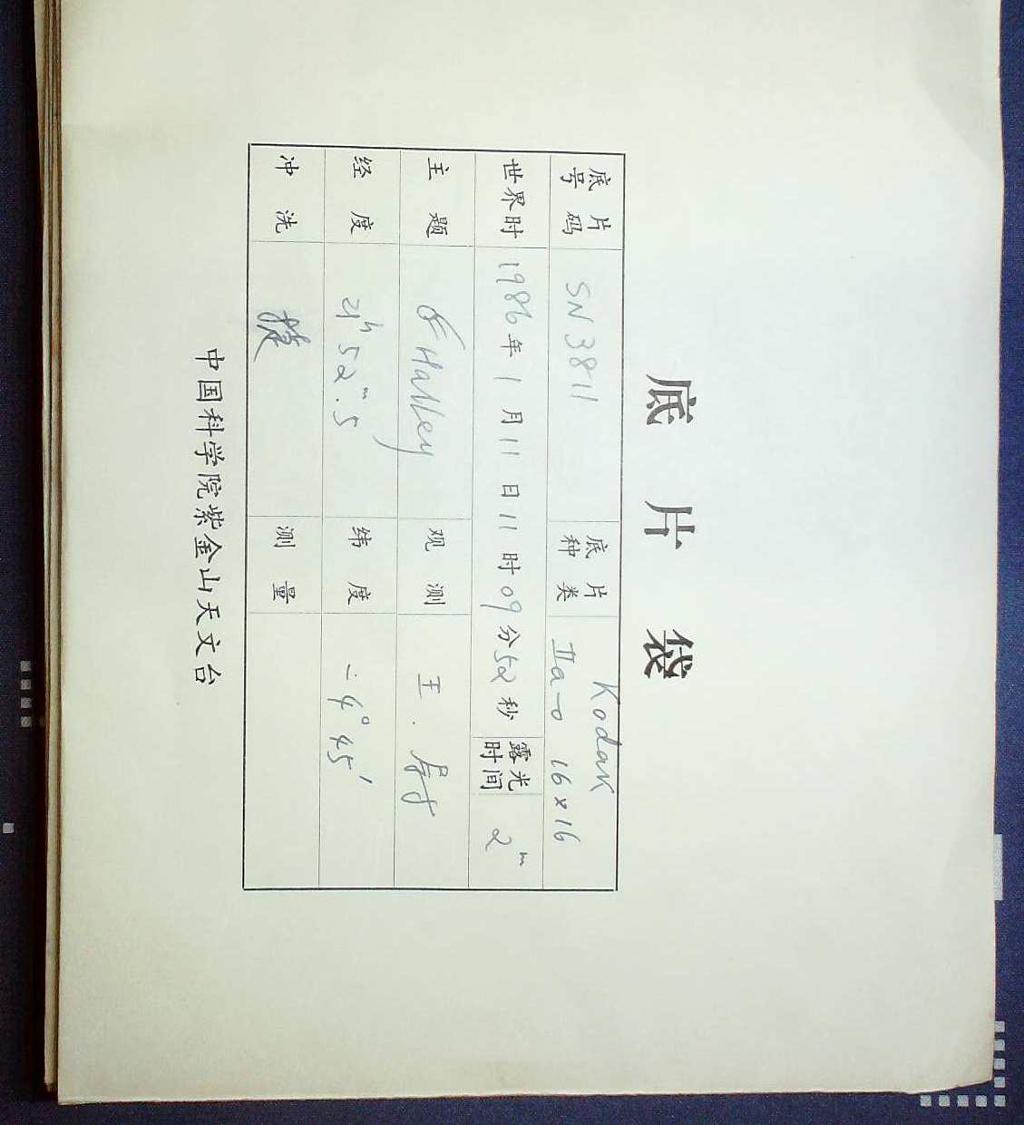 底片袋
底片号码 SN3811 底片种类 Kodak IIa-o 16×16
世界时 1986年1月11日11时09分52秒 露光时间 2m
主题 Halley 观测 王.
经度 21h52m.5 纬度 -4°45′
冲洗 测量
中国科学院紫金山天文台